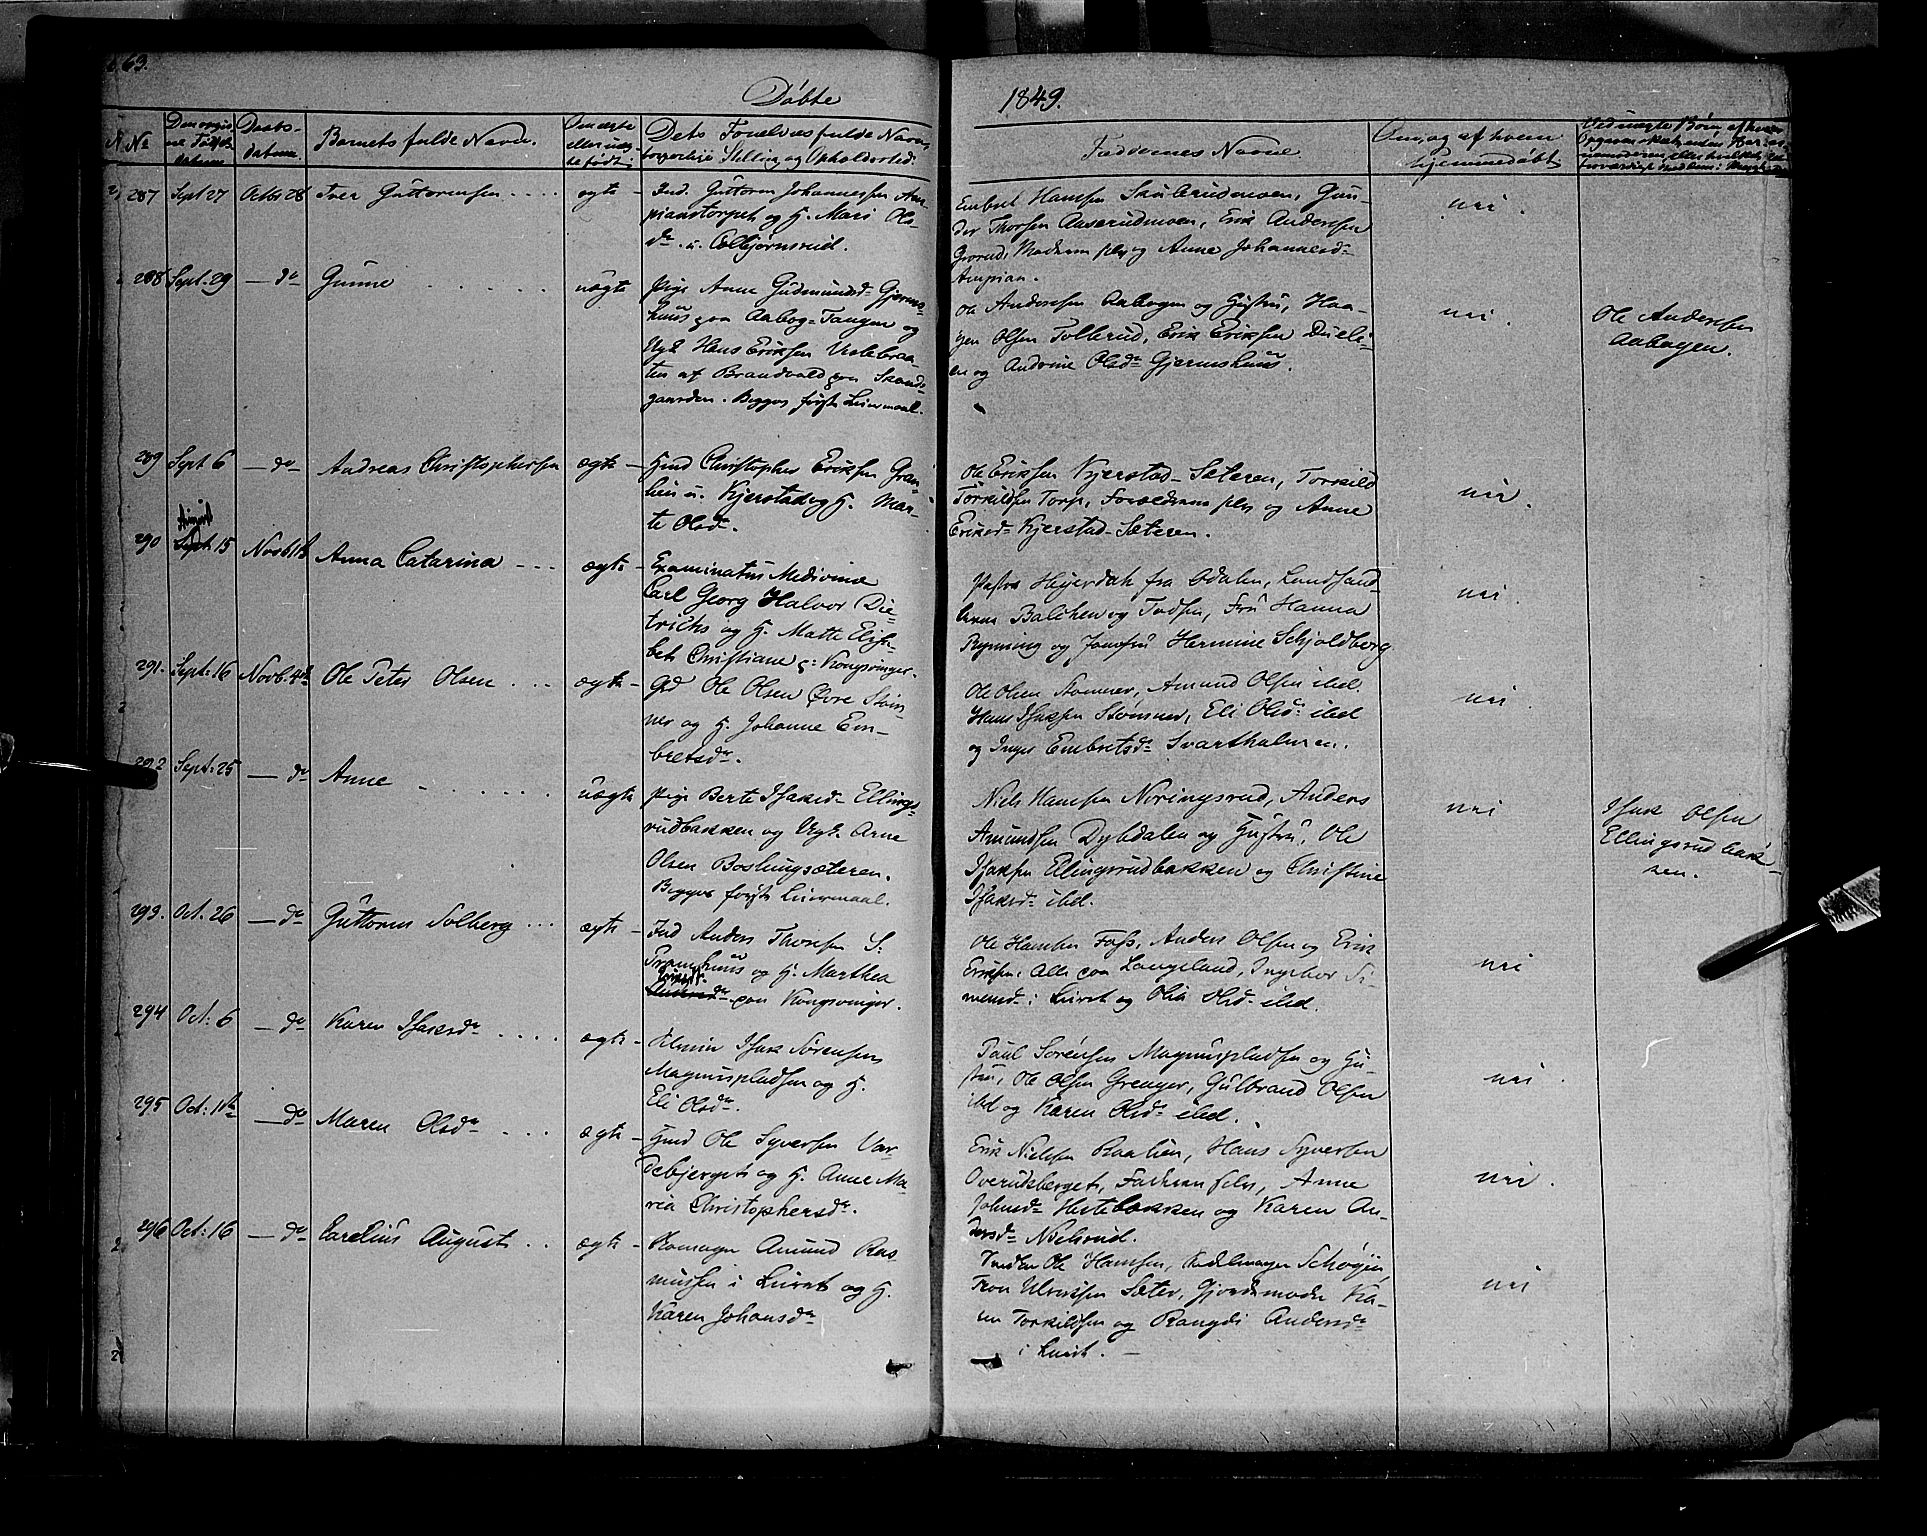 63.
Døbte
1849.
No
Daabs-
datum
Barnets fulde Navn.
Om ægte
eller uæg-
te født.
Dets Forældres fulde Navn
borgerlige Stilling og Opholdssted.
Faddernes Navne.
Om, og af hvem
hjemmedøbt
287 Sept 27 Octbr 28 Iver Guttormsen ægte
Ind. Guttorm Johannessen Am-
pianstorpet og H. Mari Ols-
dr. u. Esbjørnsrud.
Embret Hansen Skulerudmoen, Gun-
der Thorsen Anserudmoen, Erik Andersen
Grorud, Moderen selv og Anne Johannesdr
Ampian.
nei.
288 Sept. 29 — do Gunne uægte
Pige Anne Gudmundsdr Gjerms-
huus paa Aabog-Tangen og
Ugk Hans Eriksen Vestebraa-
ten af Brandvold paa Skands-
gaarden. Begges første Leiermaal.
Ole Andersen Aabogen og Hustru, Haa-
gen Olsen Tollerud, Erik Eriksen
og Andrine Olsdr Gjermshuus.
nei.
Ole Andersen
Aabogen.
289 Sept 6 — do Andreas Christophersen ægte
Hmd Christopher Eriksen Gran-
lien u. Kjerstad og H. Mar-
te Olsdr.
Ole Eriksen Kjerstad-Sæteren, Torkild
Torkildsen Torp, Forældrene selv og Anne
Eriksdr Kjerstad-Sæteren.
nei.
290 August 15 Novb. Anna Catarina ægte
Examinatus Medicinæ
Carl Georg Halvor Die-
trichs og H. Matte Elisa-
bet Christiane p: Kongsvinger.
Pastor Heyerdahl fra Odalen, Landhand-
lerne Balchen og Todsen, Fru Hanna
Rynning og Jomfru Hermine Schjoldberg
nei.
291. Sept: 16 Novb. 4de Ole Peter Olsen ægte
Grd Ole Olsen Øvre Støm-
ner og H. Johanne Em-
bretsdr.
Ole Olsen Stømner, Amund Olsen ibd.
Hans Isaksen Stømner, Eli Olsdr ibd
og Inger Embretsdr Svartholmen.
nei.
292 Sept: 25 — do Anne uægte
Pige Berte Isaksdr Ellings-
rudbakken og Ugk. Arne
Olsen Boslungsæteren.
Begges første Leiermaal.
Niels Hansen Noringsrud, Anders
Amundsen Dybdalen og Hustru, Ole
Isaksen Ellingsrudbakken og Christine
Isaksdr ibd.
nei
Isak Olsen
Ellingsrudbak-
ken.
293. Oct. 26 — do Guttorm Solberg ægte
Ind Anders Thorsen S:
Pramhuus og H. Marthea
paa Kongsvinger.
Ole Hansen Foss, Anders Olsen og Erik
Eriksen, Alle paa Langeland, Ingebor Si-
mensdr i Leiret og Olia Olsdr ibd.
nei
294 Oct: 6 — do Karen Isaksdr ægte
Isak Sørensen
Magnuspladsen og H.
Eli Olsdr.
Paul Sørensen Magnuspladsen og Hu-
stru, Ole Olsen Grenger, Gulbrand Olsen
ibd og Karen Olsdr ibd.
nei.
295 Oct: 11te — do Maren Olsdr ægte
Hmd Ole Syversen Var-
debjerget og H. Anne Ma-
ria Christophersdr.
Erik Nielsen Raalien, Hans Syversen
Overudsberget, Faderen selv, Anne
Johnsdr Hestebakken og Karen An-
dersdr Nielsrud.
nei.
296 Oct: 16 — do Carelius August ægte
Amund Ras-
mussen i Leiret og H.
Karen Johansdr
Ole Hansen, Schøyen,
Tron Ulriksen Sæter, Gjordemoder Ka-
ren Torkildsen og Rangdi Andersdr
i Leiret.
nei